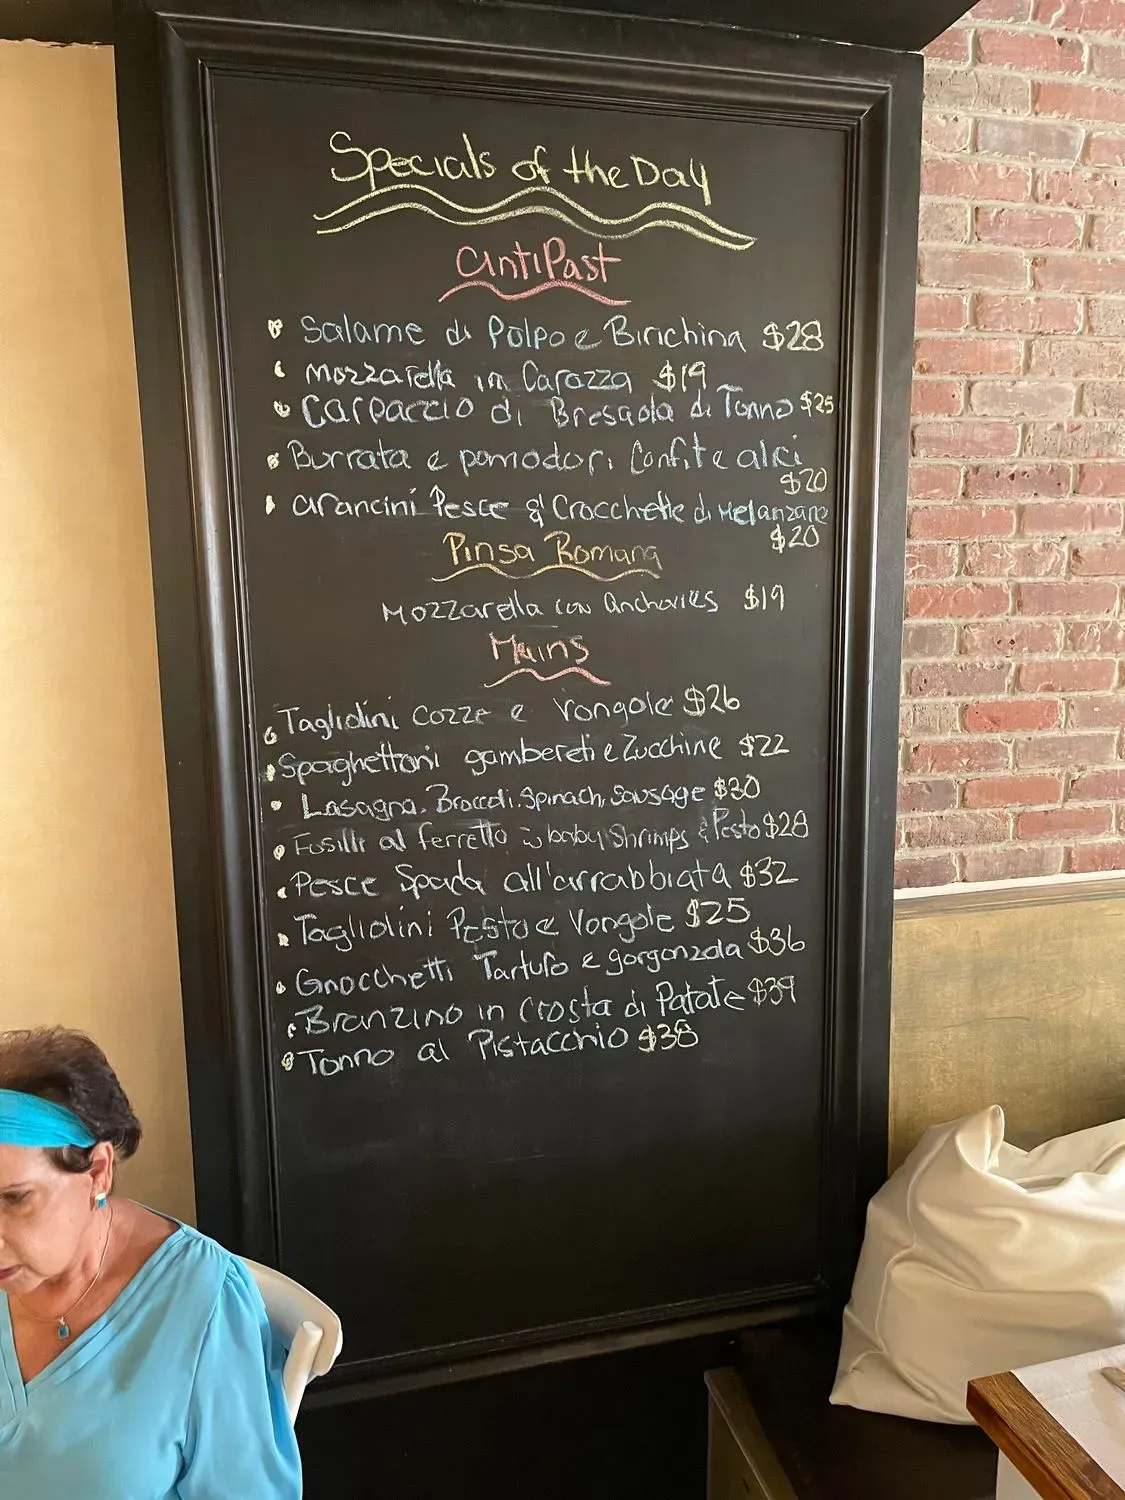 Specials of the Day
antiPast
Salame di Polpo e Birichina $28
Mozzarella in Carozza $19
Carpaccio di Bresaola di Tonno $25
Burrata e pomodori Confit e alici
$20
arancini Pesce & Crocchette di Melanzane
$20
Pinsa Romana
Mozzarella con anchovies $19
Mains
Tagliolini Cozze e Vongole $26
Spaghettoni gambereti e Zucchine $22
Lasagna, Broccoli, Spinach, Sausage $30
Fusilli al ferretto w baby Shrimps & Pesto $28
Pesce Spada all'arrabbiata $32
Tagliolini Pesto e Vongole $25
Gnocchetti Tartufo e gorgonzola $36
Branzino in Crosta di Patate $39
Tonno al Pistacchio $38